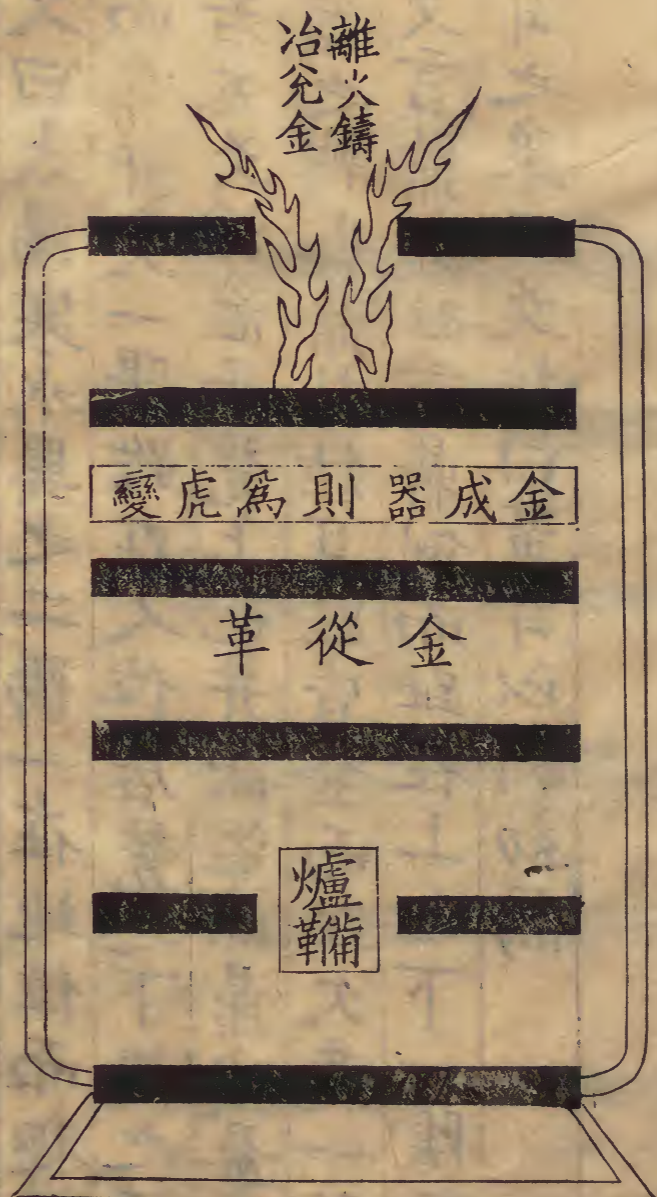 離火鑄
冶兊金
金成器則爲虎變
金從革
爐鞴